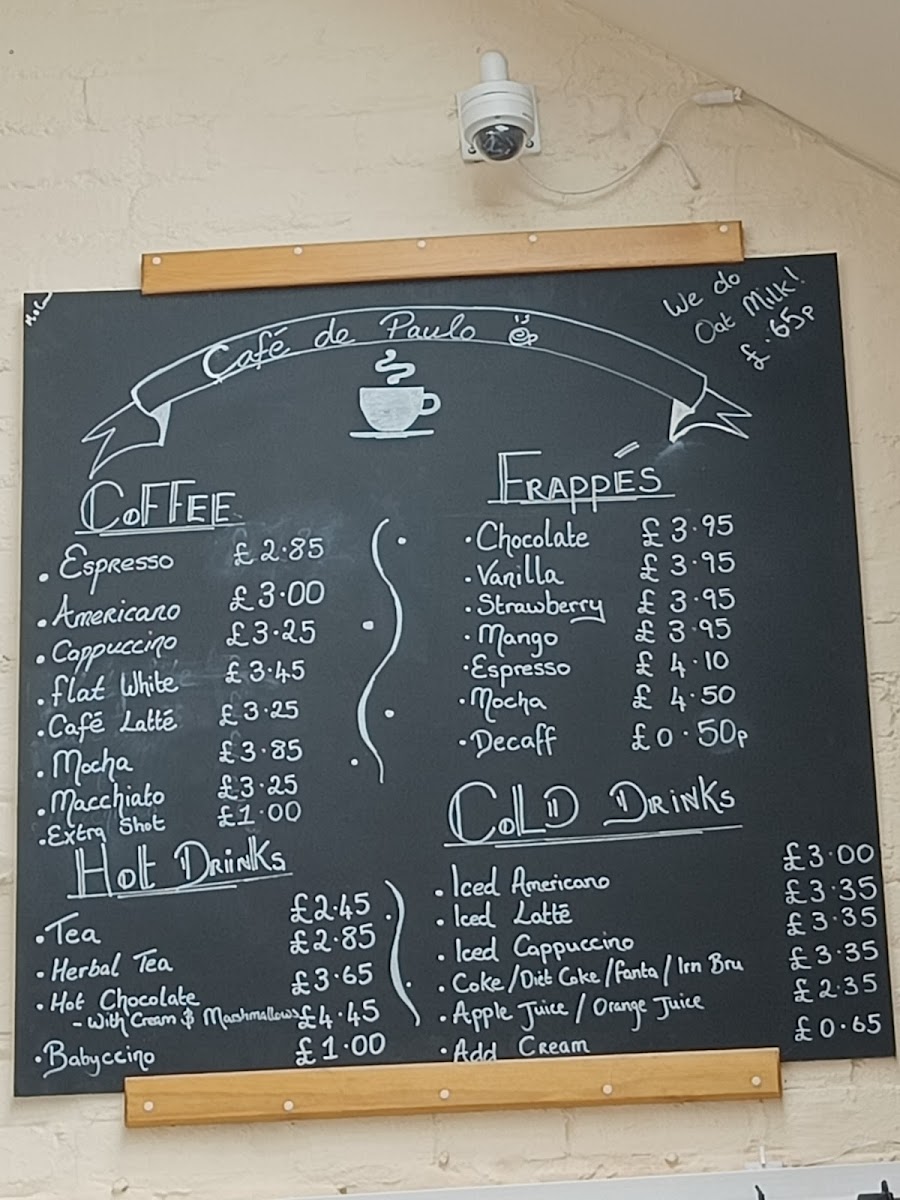 Café de Paulo
We do
Oat Milk!
£.65p
COFFEE
• Espresso £2.85
• Americano £3.00
• Cappuccino £3.25
• Flat White £3.45
• Café Latté £3.25
• Mocha £3.85
• Macchiato £3.25
• Extra Shot £1.00
Hot Drinks
• Tea £2.45
• Herbal Tea £2.85
• Hot Chocolate £3.65
- With Cream & Marshmallows £4.45
• Babyccino £1.00
FRAPPÉS
• Chocolate £3.95
• Vanilla £3.95
• Strawberry £3.95
• Mango £3.95
• Espresso £4.10
• Mocha £4.50
• Decaff £0.50p
COLD DRINKS
• Iced Americano £3.00
• Iced Latté £3.35
• Iced Cappuccino £3.35
• Coke/Diet Coke/Fanta/Irn Bru £3.35
• Apple Juice / Orange Juice £2.35
• Add Cream £0.65